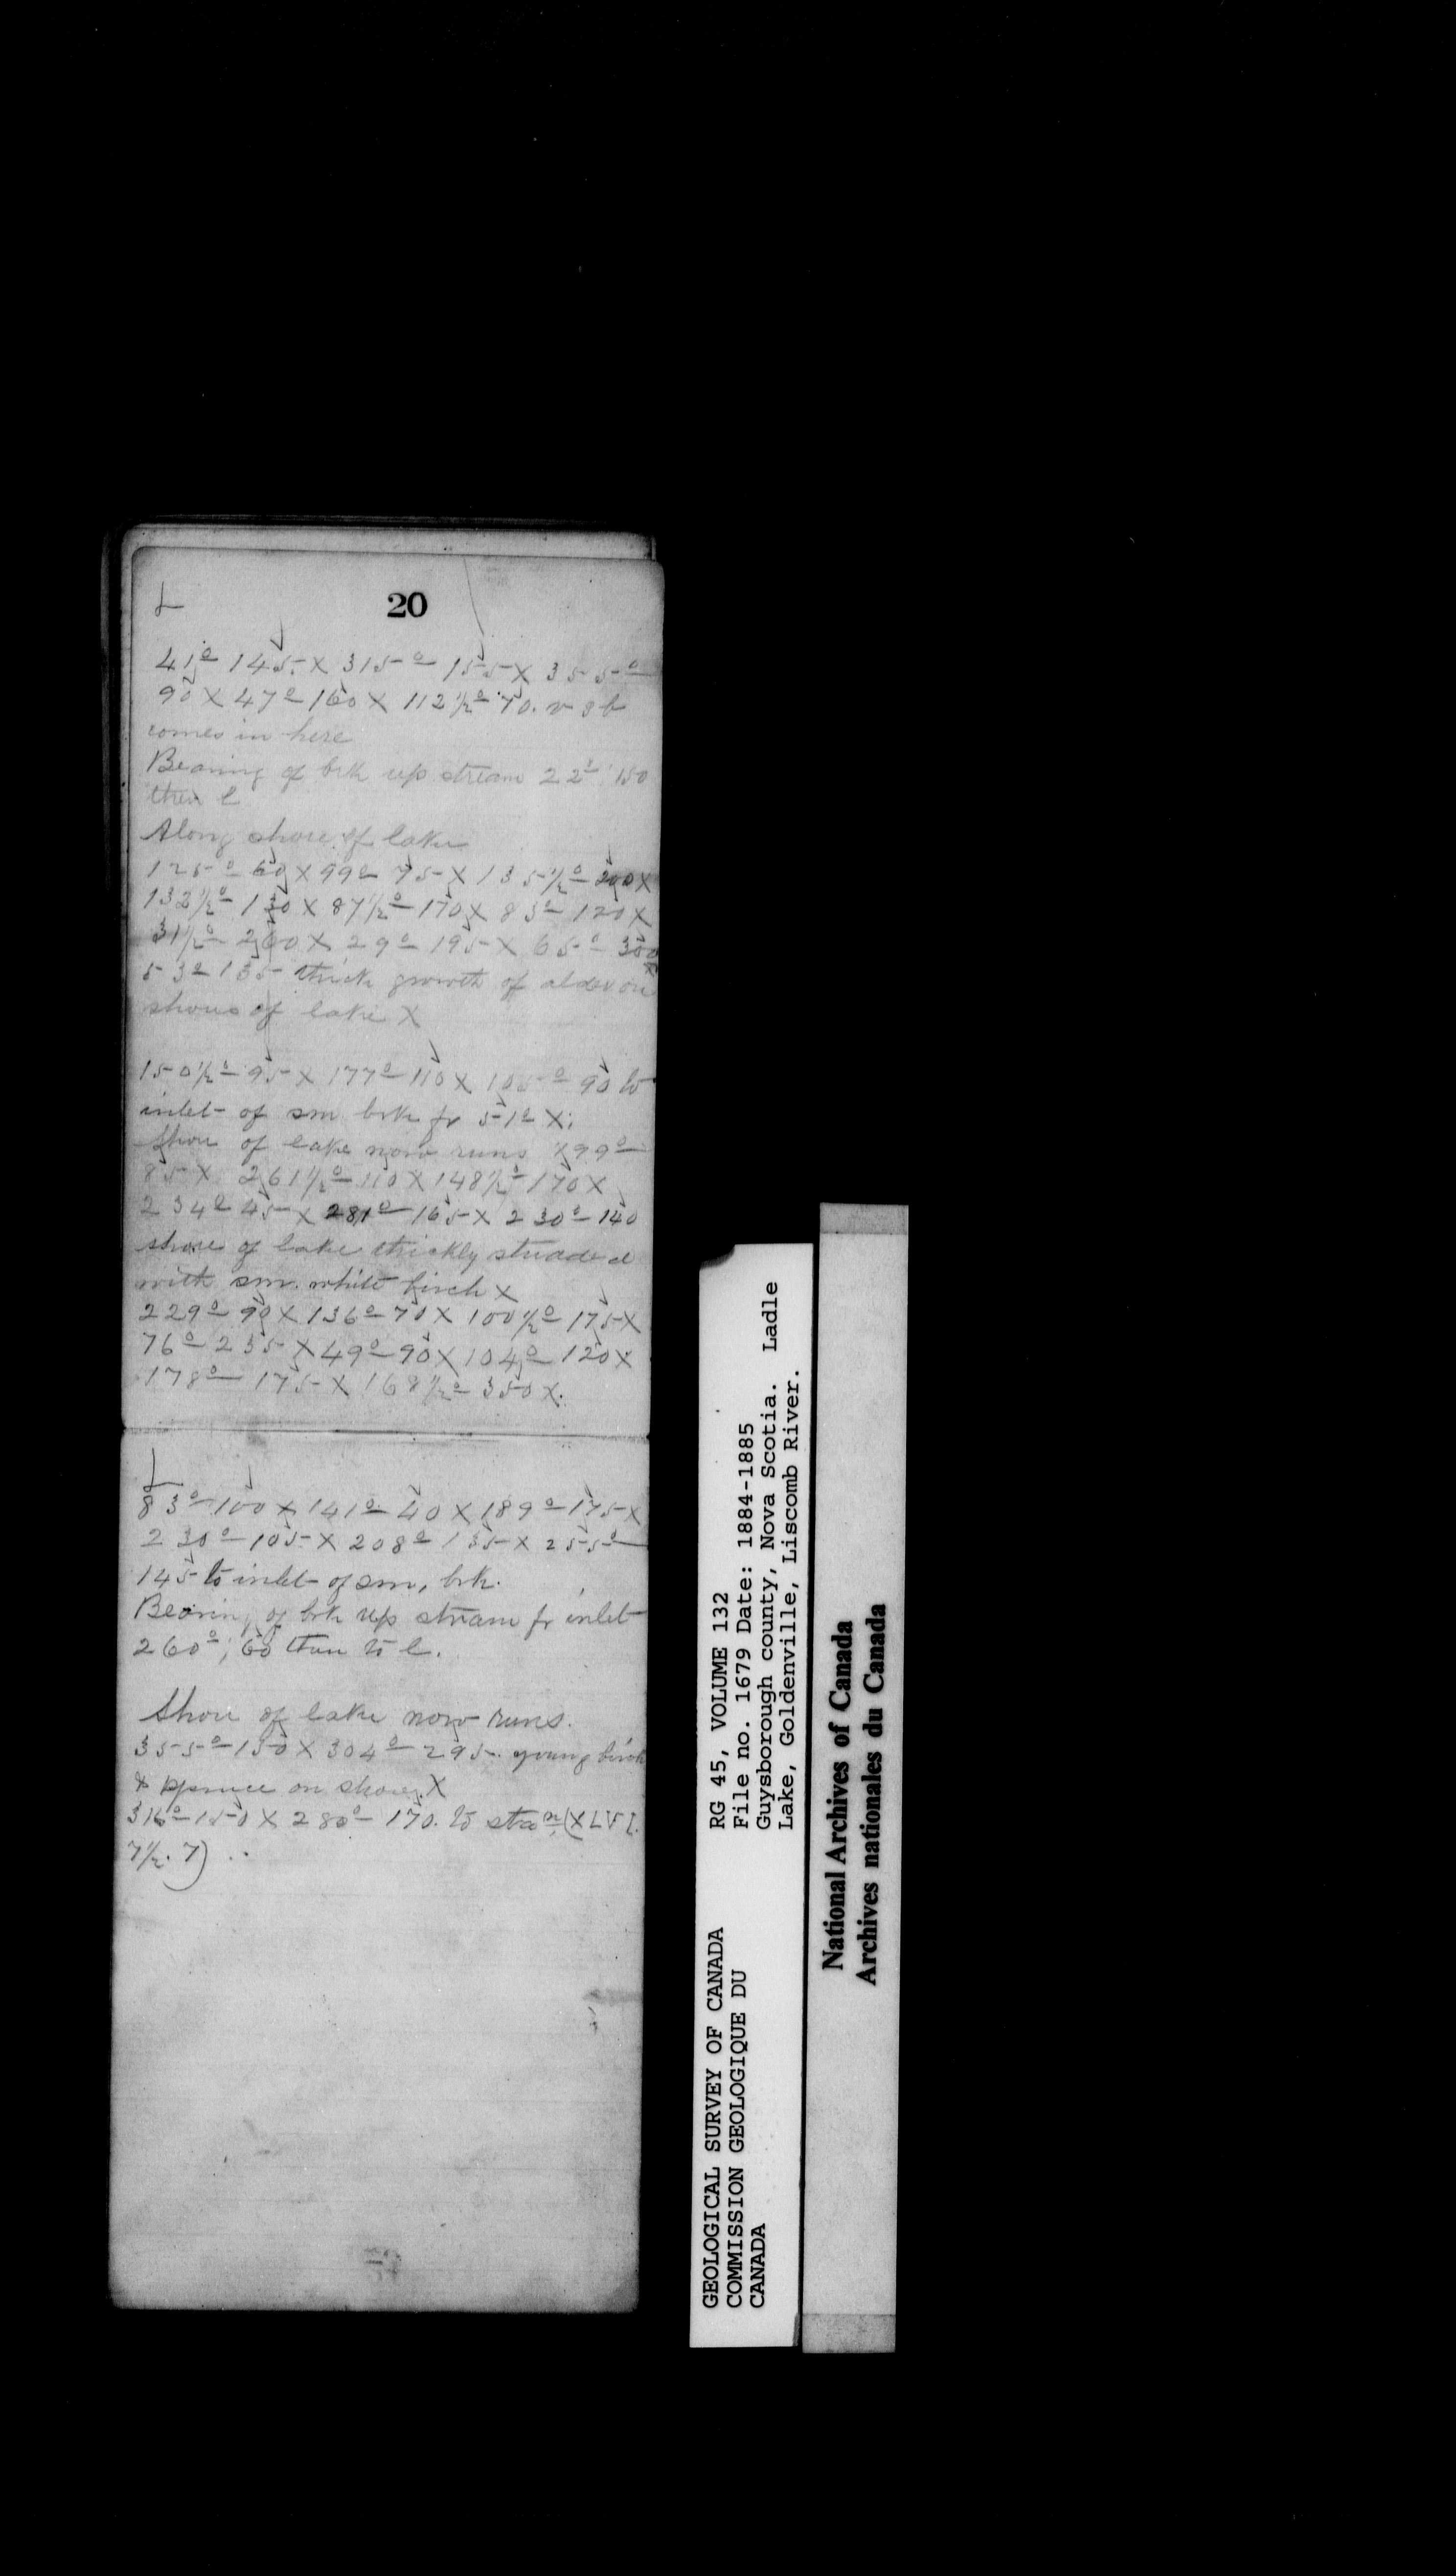 20
41º 145 X 315º 155 X 355º
90 X 47º 160 X 112½º 70. v s b
comes in here
Bearing of brk up stream 22º 150
then l
Along shore of lake
125º 60 X 99º 75 X 135½º 200 X
132½º 130 X 87½º 170 X 83º 120 X
31½º 260 X 29º 195 X 65º 300 X
53º 135 thick growth of alder on
shores of lake X
150½º 95 X 177º 110 X 105º 90 to
inlet of sm brk fr 51º X
Shore of lake now runs 299º
85 X 261½º 110 X 148½º 170 X
234º 45 X 281º 165 X 230º 140
shore of lake thickly studded
with sm. white birch X
229º 90 X 136º 70 X 100½º 175 X
76º 235 X 49º 90 X 104º 120 X
178º 175 X 168½º 350 X.
83º 100 X 141º 40 X 189º 175 X
230º 105 X 208º 135 X 255º
145 to inlet of sm. brk.
Bearing of brk up stream fr inlet
260º; 60 then to l.
Shore of lake now runs.
355º 150 X 304º 295. young birch
& spruce on shore. X
316º 150 X 280º 170. to sta (XLVI.
7½. 7) ..
GEOLOGICAL SURVEY OF CANADA
COMMISSION GEOLOGIQUE DU
CANADA
RG 45, VOLUME 132
File no. 1679 Date: 1884-1885
Guysborough county, Nova Scotia. Ladle
Lake, Goldenville, Liscomb River.
National Archives of Canada
Archives nationales du Canada